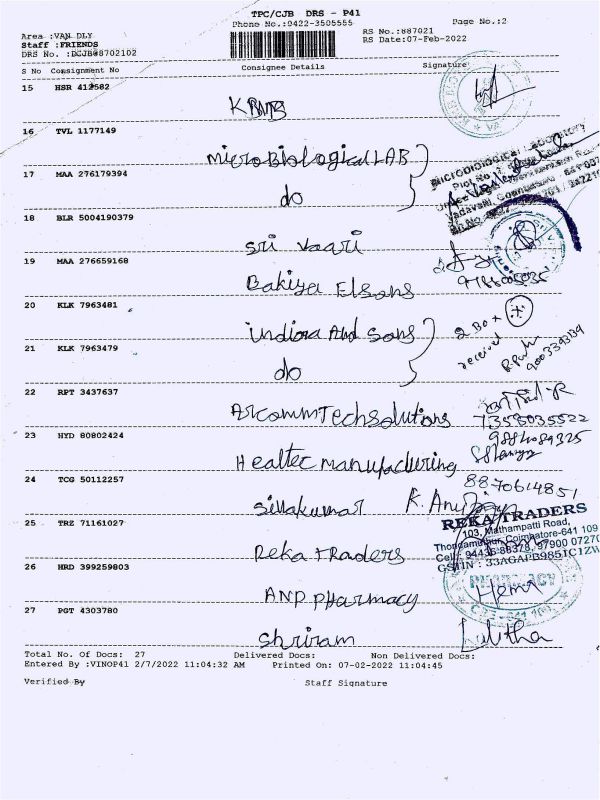 TPC/CJB DRS - P41
Phone No.:0422-3505555
Page No.:2
Area :VAN DLY
Staff :FRIENDS
DRS No. :DCJB08702102
RS No.:887021
RS Date:07-Feb-2022
S No Consignment No Consignee Details Signature
15 HSR 412582
16 TVL 1177149
microBiological LAB
17 MAA 276179394
do
18 BLR 5004190379
sri vaari
19 MAA 276659168
Bakiya Elsons
20 KLK 7963481
indiora And sons
2 Box
received
21 KLK 7963479
do
22 RPT 3437637
Arcomm Tech solutions
7358035522
23 HYD 80802424
9884089325
Healtec manufacturing
24 TCG 50112257
8870614851
sivakumar
25 TRZ 71161027
REKA TRADERS
103, Mathampatti Road,
Thondamuthur, Coimbatore-641 109
Reka traders
26 HRD 399259803
Hema
ANP pharmacy
27 PGT 4303780
shriram
Lalitha
Total No. Of Docs: 27 Delivered Docs: Non Delivered Docs:
Entered By :VINOP41 2/7/2022 11:04:32 AM Printed On: 07-02-2022 11:04:45
Verified By Staff Signature